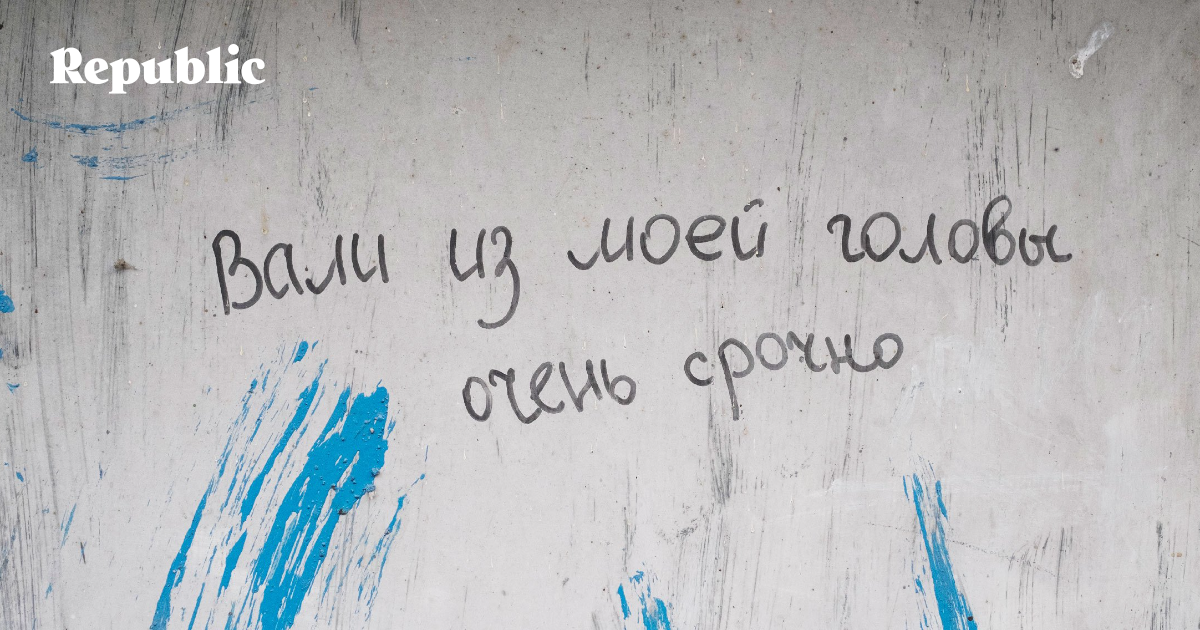 Republic
Вали из моей головы
очень срочно